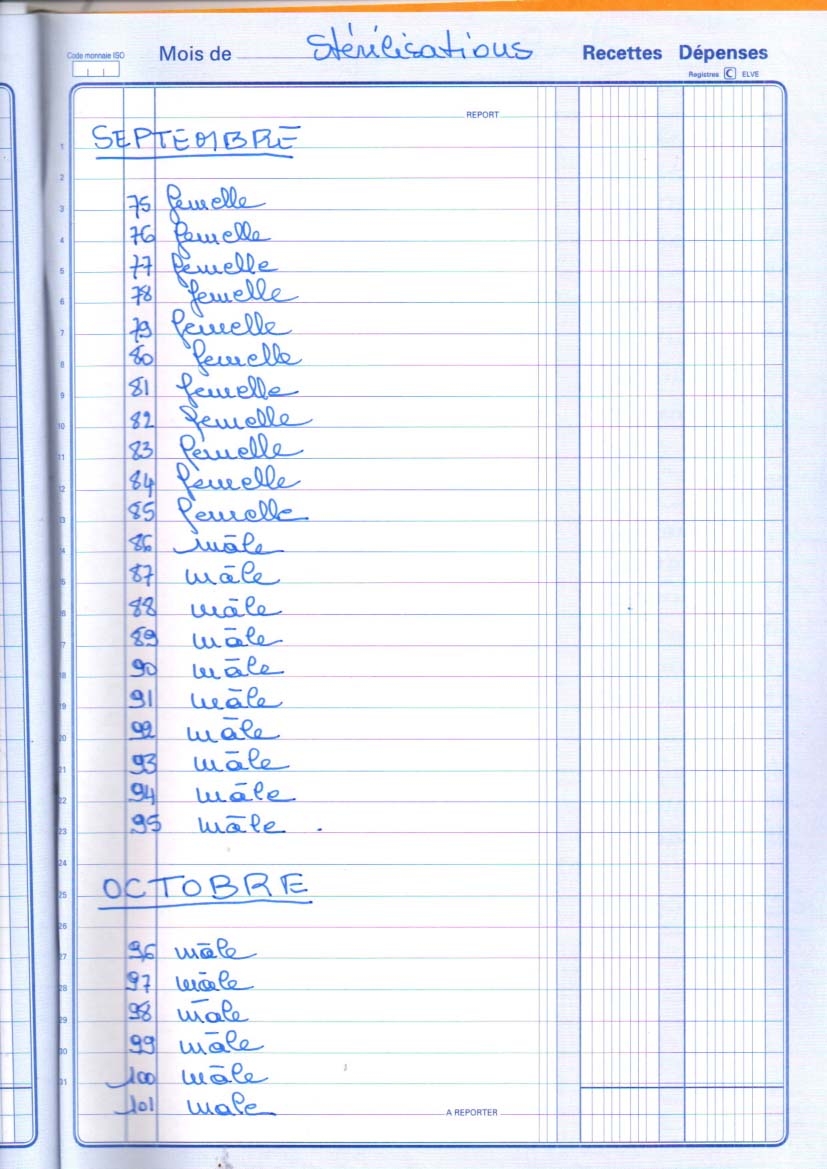 Code monnaie ISO
Mois de Stérilisations Recettes Dépenses
Registres C ELVE
REPORT
SEPTEMBRE
1
2
3 75 femelle
4 76 femelle
5 77 femelle
6 78 femelle
7 79 femelle
8 80 femelle
9 81 femelle
10 82 femelle
11 83 femelle
12 84 femelle
13 85 femelle
14 86 mâle
15 87 mâle
16 88 mâle
17 89 mâle
18 90 mâle
19 91 mâle
20 92 mâle
21 93 mâle
22 94 mâle
23 95 mâle .
24
25 OCTOBRE
26
27 96 mâle
28 97 mâle
29 98 mâle
30 99 mâle
31 100 mâle
101 male A REPORTER